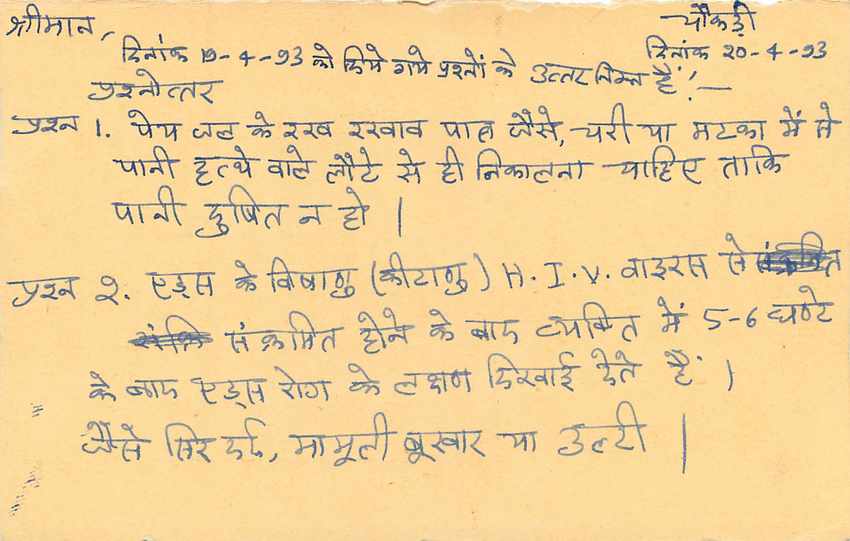 श्रीमान, चौकड़ी
दिनांक 19-4-93 को दिये गये प्रश्नों के उत्तर निम्न हैं:— दिनांक 20-4-93
प्रश्नोत्तर
प्रश्न 1. पेय जल के रख रखाव पात्र जैसे, चरी या मटका में से
पानी हत्थे वाले लौटे से ही निकालना चाहिए ताकि
पानी दुषित न हो |
प्रश्न 2. एड्स के विषाणु (कीटाणु) H.I.V. वाइरस से
संक्रामित होने के बाद व्यक्ति में 5-6 घण्टे
के बाद एड्स रोग के लक्षण दिखाई देते हैं |
जैसे सिर दर्द, मामूली बूखार या उल्टी |